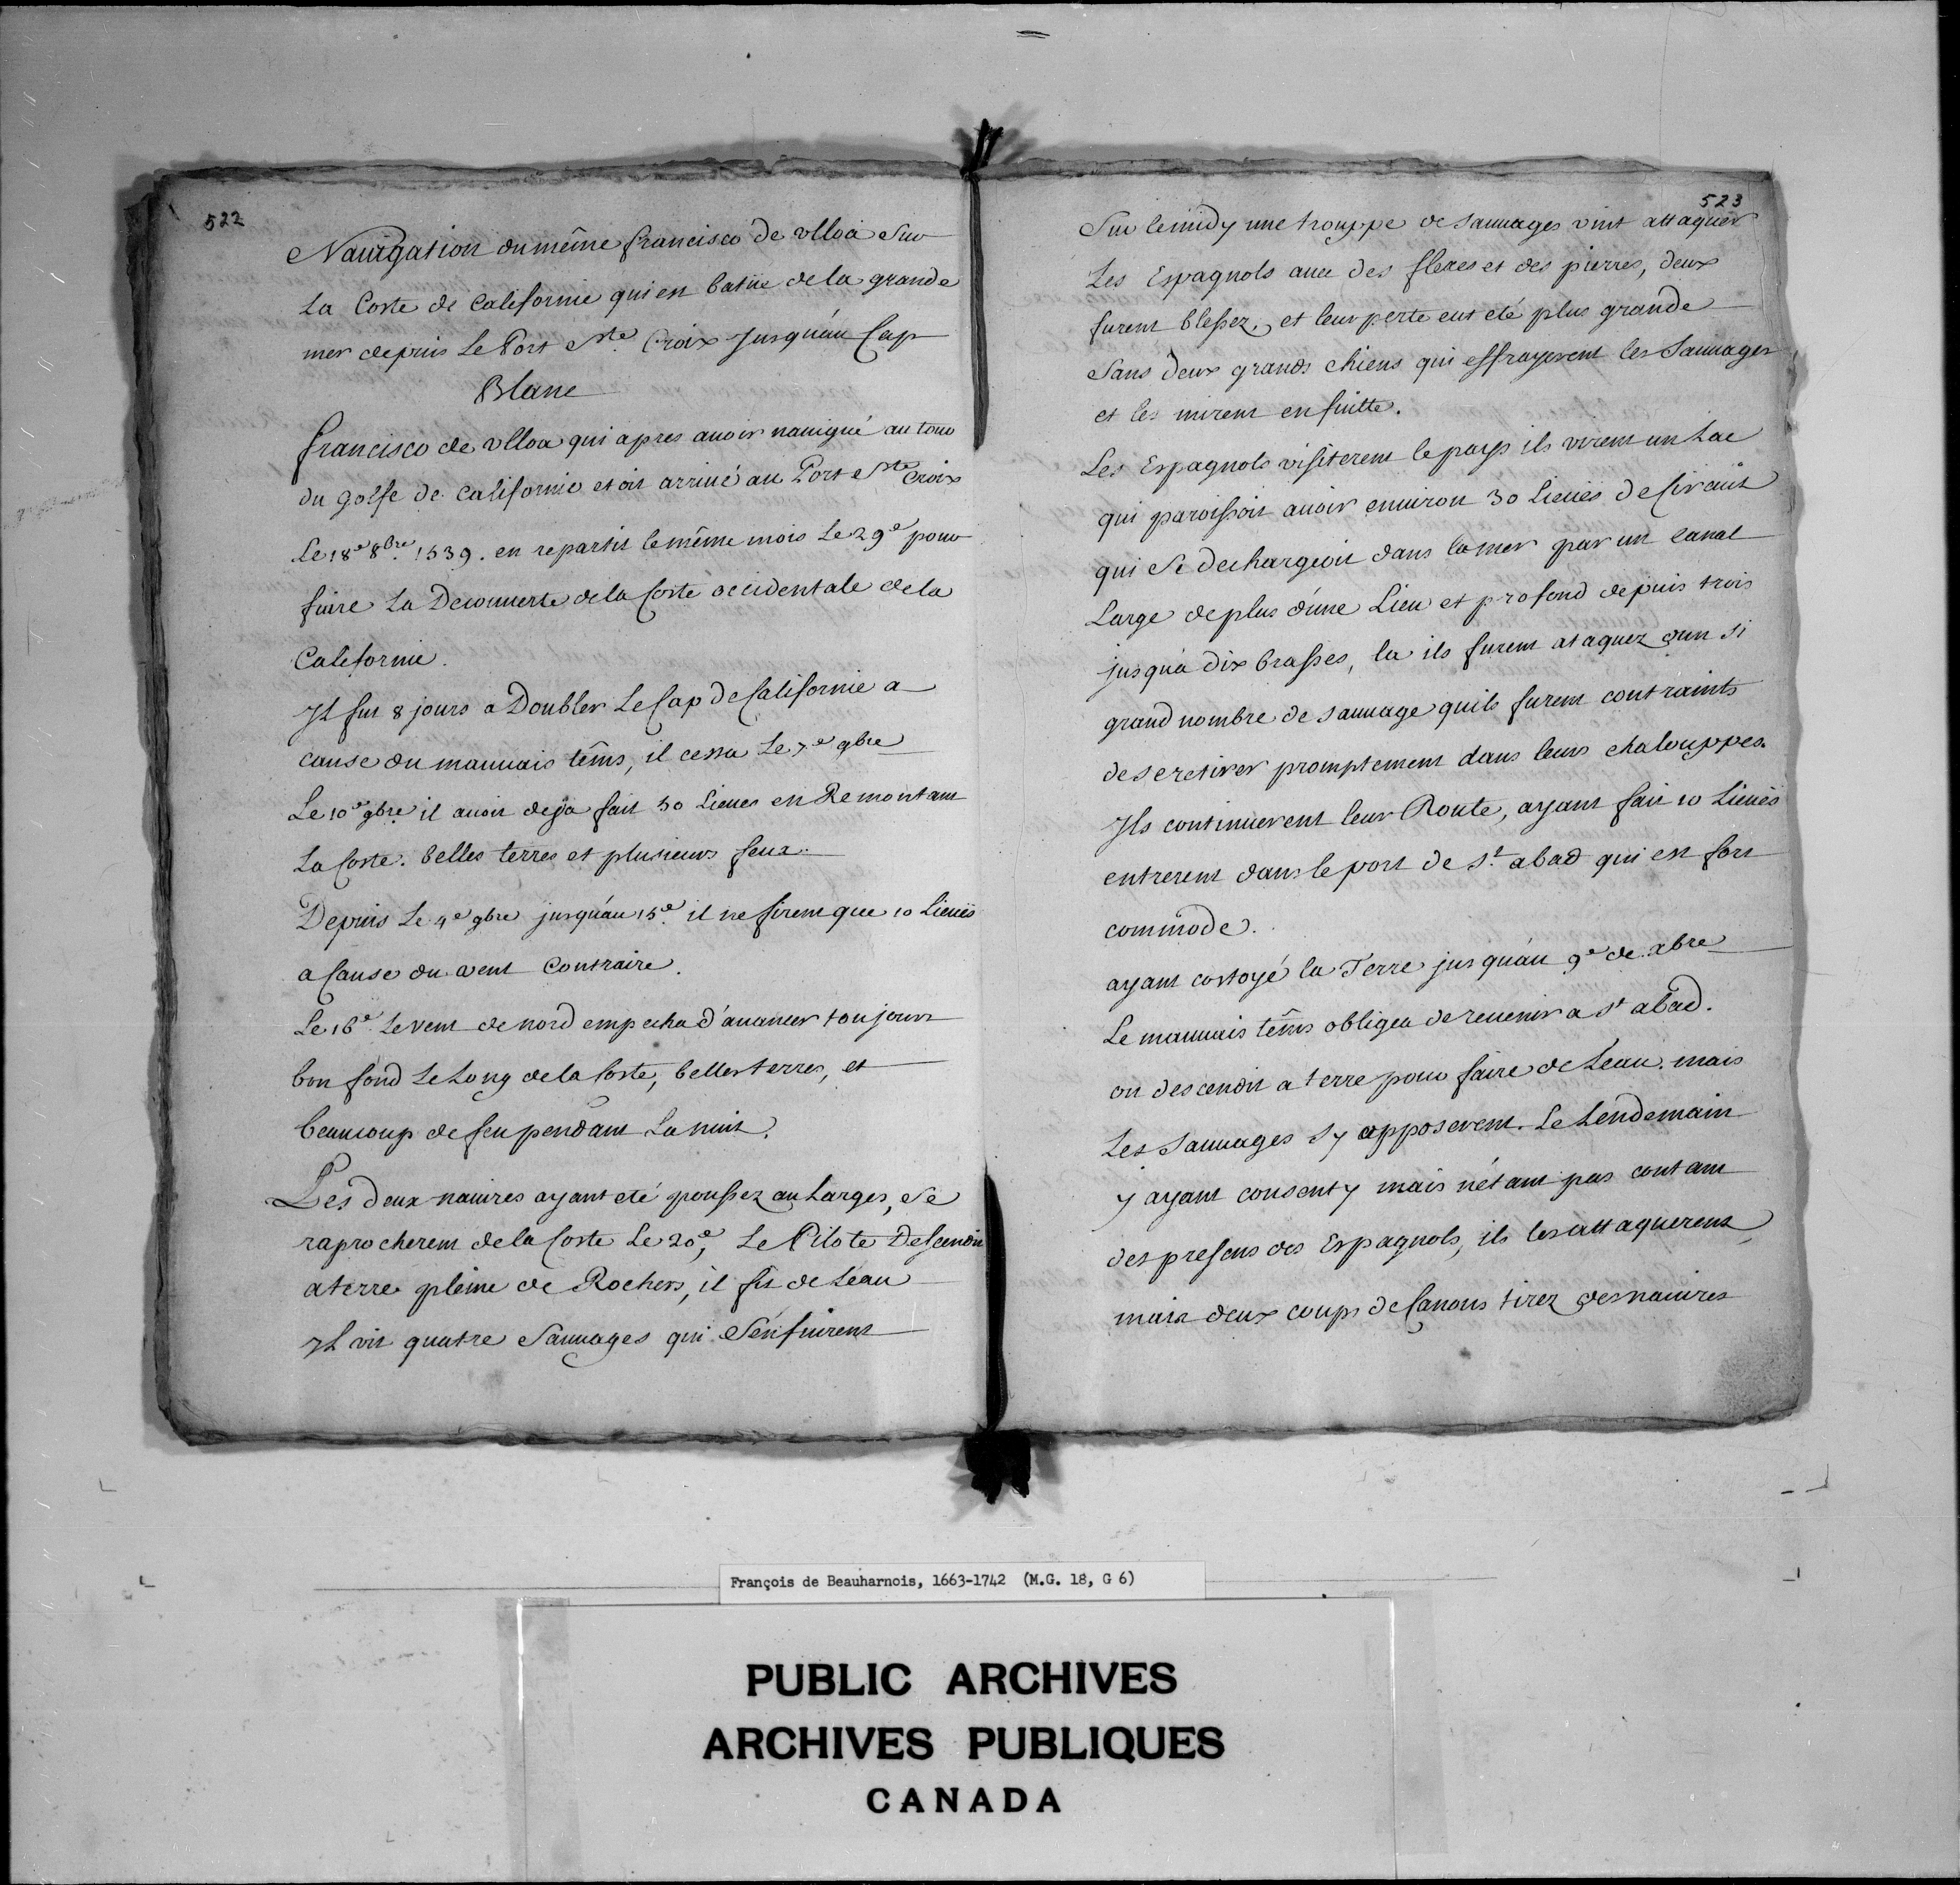 522
Navigation du même francisco de vlloa Sur
La Coste de Californie qui est batüe de la grande
mer depuis Le Port Ste. Croix Jusqu'au Cap
Blanc
francisco de vlloa qui apres auoir nauigué au tour
du golfe de Californie etoit arriué au Port Ste Croix
Le 18e 8bre. 1539. en repartit le même mois Le 29e pour
faire La Decouuerte de la Coste occidentale de la
Californie.
Il fut 8 jours a Doubler Le Cap de Californie a
cause du mauuais têms, il cessa Le 7e 9bre
Le 10e 9bre il auoit deja fait 30 Lieues en Remontant
La Coste. belles terres et plusieurs feux.
Depuis Le 4e 9bre jusqu'au 15e. il ne firent que 10 Lieuës
a Cause du vent Contraire.
Le 16e. Le vent de nord empecha d'auancer toujours
bon fond Le Long de la Coste, belles terres, et
beaucoup de feu pendant La nuit.
Les deux nauires ayant eté poussez au Larges, Se
raprocherent de la Coste Le 20e, Le Pilote Descendit
a terre pleine de Rochers, il fit de Leau
Il vit quatre Sauuages qui S'enfuirent
523
Sur le midy une trouppe de Sauuages vint attaquer
Les Espagnols auec des fleches et des pierres, deux
furent blessez, et leur perte eut eté plus grande
Sans deux grands chiens qui effrayerent les Sauuages
et les mirent en fuitte.
Les Espagnols visiterent le pays ils virent un Lac
qui paroissoit auoir enuiron 30 Lieuës de Circuit
qui Se dechargeoit dans la mer par un canal
Large de plus d'une Lieu et profond depuis trois
jusqu'a dix brasses, la ils furent ataquez d'un si
grand nombre de sauuage quils furent contraints
de se retirer promptement dans leurs chalouppes.
Ils continuerent leur Route, ayant fait 10 Lieuës
entrerent dans le port de St. abad qui est fort
commode.
ayant costoyé la Terre jusqu'au 9e de xbre
Le mauuais têms obligea de reuenir a St abad.
on descendit a terre pour faire de Leau. mais
Les Sauuages s'y opposerent. Le Lendemain
y ayant consenty mais n'étant pas contant
des presens des Espagnols, ils les attaquerent,
mais deux coups de Canons tirez des nauires
François de Beauharnois, 1663-1742 (M.G. 18, G 6)
PUBLIC ARCHIVES
ARCHIVES PUBLIQUES
CANADA